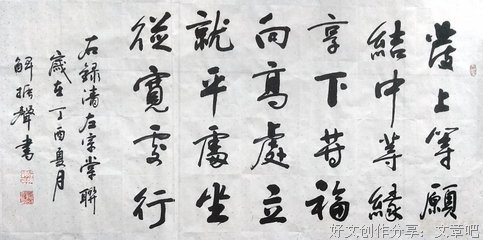 發上等願
結中等緣
享下等福
向高處立
就平處坐
從寬處行
右録清左宗棠聯
歲在丁酉夏月
解振聲書
好文创作分享：文章吧